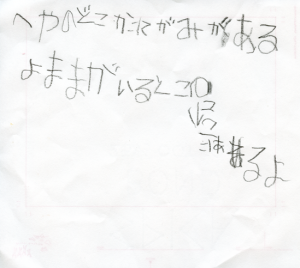 へやのどこかにてがみがある
よままがいるところ
に
あるよ